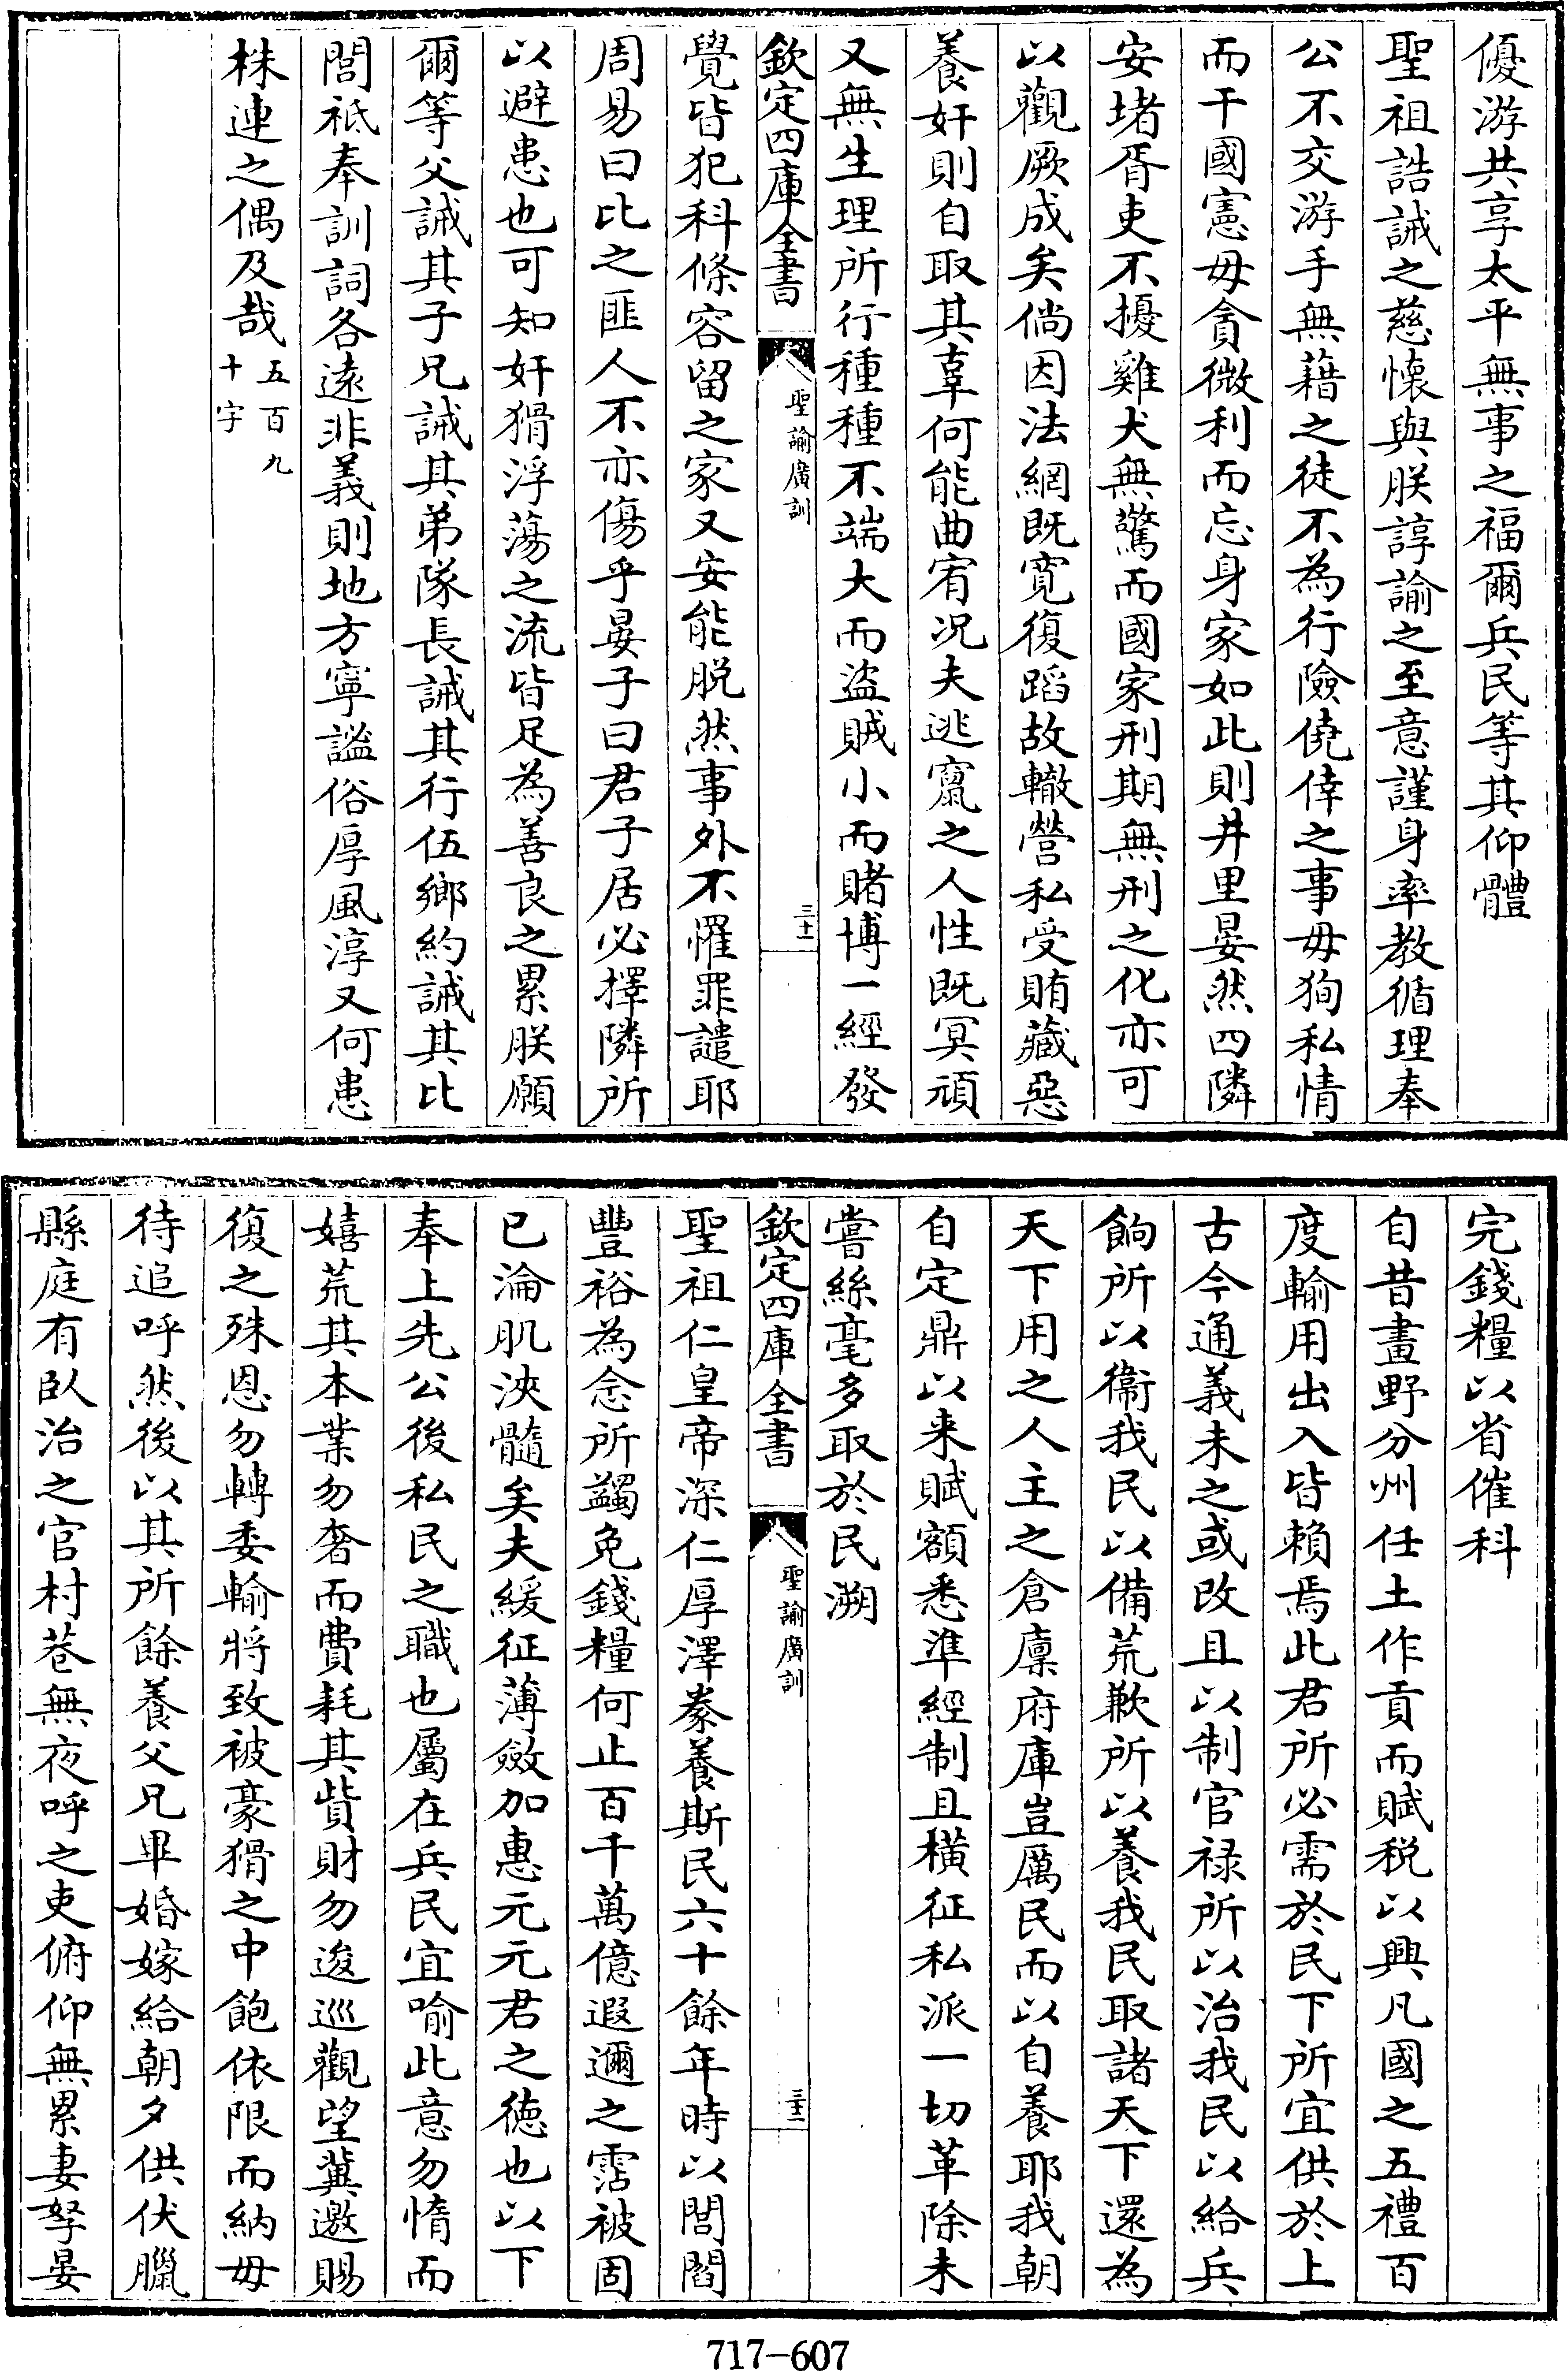 優游共享太平無事之福爾兵民等其仰體
聖祖誥誡之慈懷與朕諄諭之至意謹身率教循理奉
公不交游手無藉之徒不為行險僥倖之事毋狥私情
而干國憲毋貪微利而忘身家如此則井里晏然四隣
安堵胥吏不擾雞犬無驚而國家刑期無刑之化亦可
以觀厥成矣倘因法網既寛復蹈故轍營私受賄藏惡
養奸則自取其辜何能曲宥况夫逃竄之人性既冥頑
又無生理所行種種不端大而盜賊小而賭博一經發
欽定四庫全書
聖諭廣訓
三十一
覺皆犯科條容留之家又安能脱然事外不罹罪譴耶
周易曰比之匪人不亦傷乎晏子曰君子居必擇隣所
以避患也可知奸猾浮蕩之流皆足為善良之累朕願
爾等父誡其子兄誡其弟隊長誡其行伍鄉約誡其比
閭祗奉訓詞各遠非義則地方寧謐俗厚風淳又何患
株連之偶及哉
五百九
十字
完錢糧以省催科
自昔畫野分州任土作貢而賦税以興凡國之五禮百
度輸用出入皆賴焉此君所必需於民下所宜供於上
古今通義未之或改且以制官禄所以治我民以給兵
餉所以衞我民以備荒歉所以養我民取諸天下還為
天下用之人主之倉廪府庫豈厲民而以自養耶我朝
自定鼎以来賦額悉準經制且橫征私派一切革除未
嘗絲毫多取於民溯
欽定四庫全書
聖諭廣訓
三十二
聖祖仁皇帝深仁厚澤豢養斯民六十餘年時以閭閻
豐裕為念所蠲免錢糧何止百千萬億遐邇之霑被固
已淪肌浹髓矣夫緩征薄斂加惠元元君之徳也以下
奉上先公後私民之職也屬在兵民宜喻此意勿惰而
嬉荒其本業勿奢而費耗其貲財勿逡巡觀望冀邀賜
復之殊恩勿轉委輸將致被豪猾之中飽依限而納毋
待追呼然後以其所餘養父兄畢婚嫁給朝夕供伏臘
縣庭有臥治之官村巷無夜呼之吏俯仰無累妻孥晏
717-607